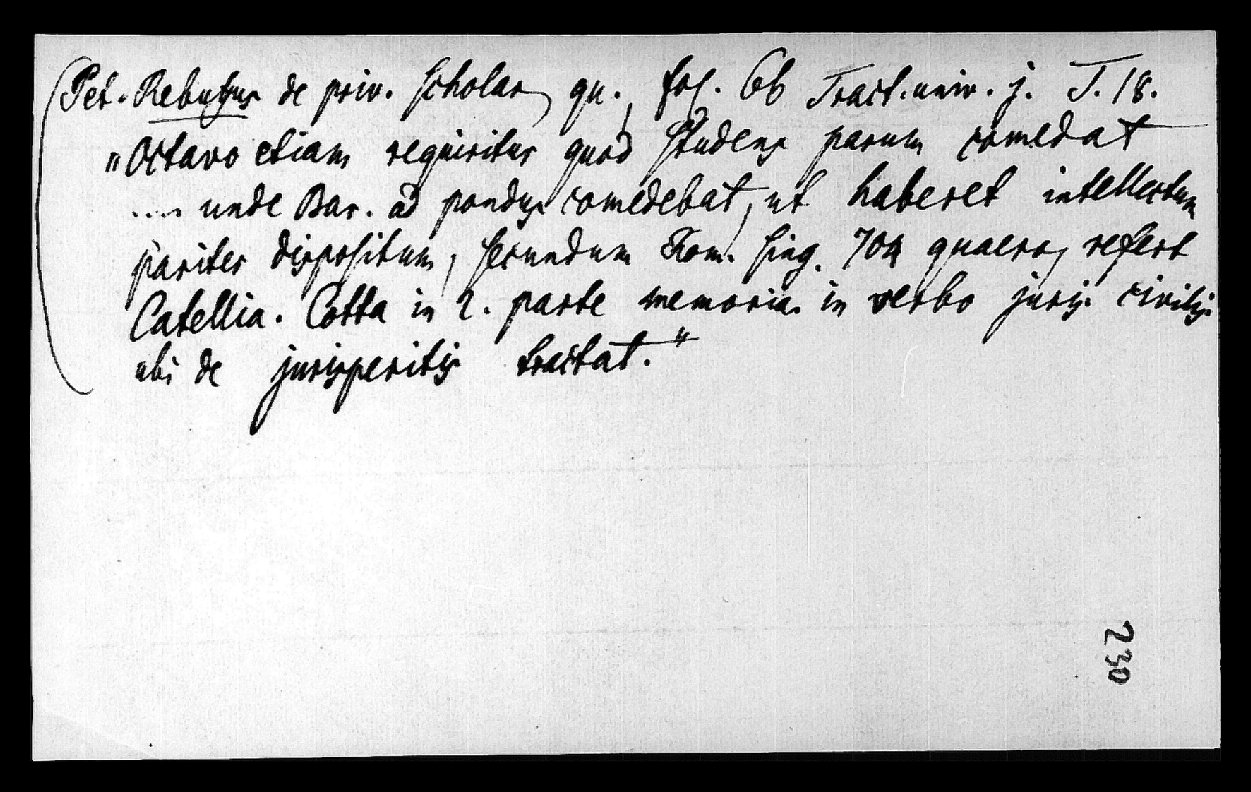 (Pet. Rebuffus de priv. scholar, qu., fol. 6b Tract. univ. j. T. 18.
"Octavo etiam requiritur quod studens parum comedat
.... unde Bar. ad pondus comedebat, ut haberet intellectum
pariter dispositum, secundum Rom. sing. 704 quaero, refert
Catellia. Cotta in 2. parte memoria. in verbo juris civilis
ubi de jurisperitis tractat."
230